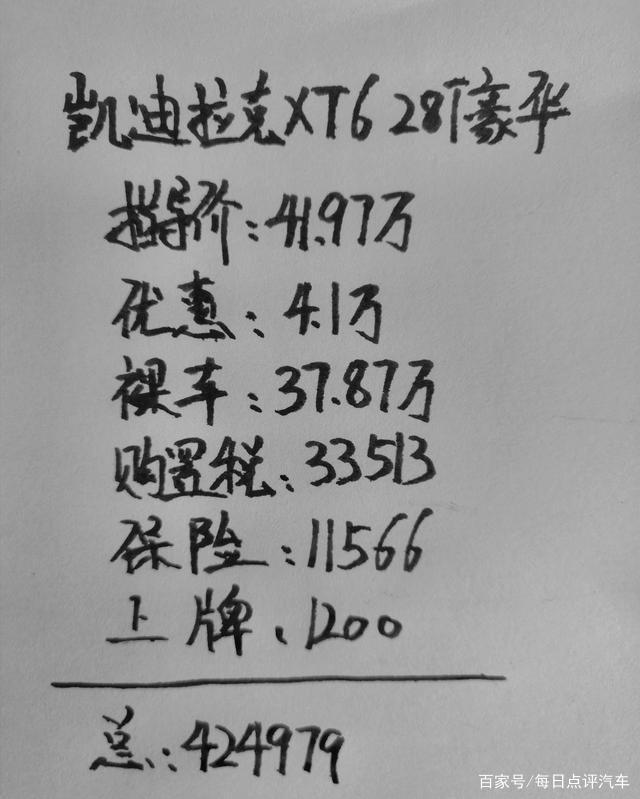 凯迪拉克XT6 28T豪华
指导价:41.97万
优惠:4.1万
裸车:37.87万
购置税:33513
保险:11566
上牌:1200
总:424979
百家号/每日点评汽车